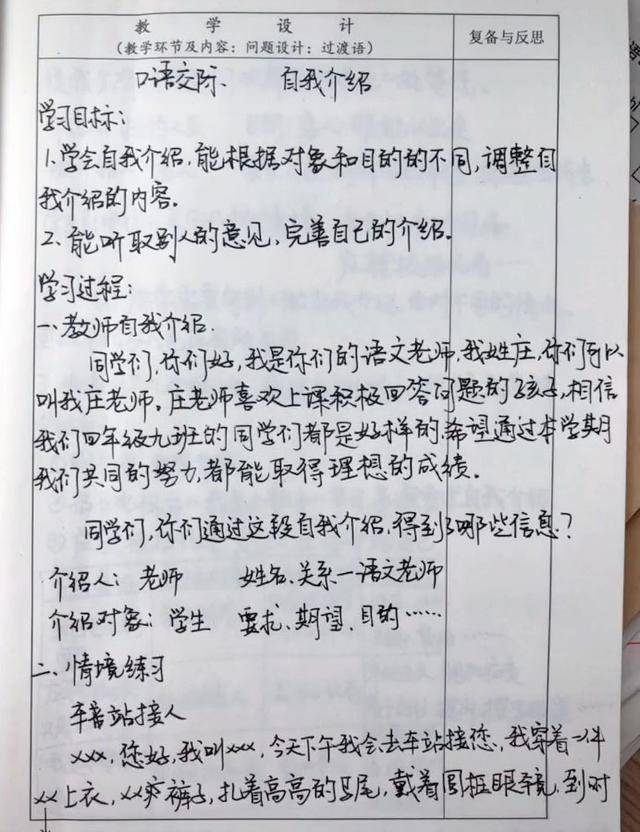 教 学 设 计
（教学环节及内容：问题设计：过渡语）
复备与反思
口语交际、 自我介绍
学习目标：
1.学会自我介绍，能根据对象和目的的不同，调整自
我介绍的内容。
2、能听取别人的意见，完善自己的介绍。
学习过程：
一、教师自我介绍.
同学们，你们好，我是你们的语文老师，我姓庄，你们可以
叫我庄老师。庄老师喜欢上课积极回答问题的孩子，相信
我们四年级九班的同学们都是好样的，希望通过本学期
我们共同的努力，都能取得理想的成绩。
同学们，你们通过这段自我介绍，得到了哪些信息？
介绍人：老师 姓名、关系－语文老师
介绍对象：学生 要求、期望、目的……
二、情境练习
车站接人
xxx，您好，我叫xxx，今天下午我会去车站接您，我穿着一件
xx上衣，xx裤子，扎着高高的马尾，戴着圆框眼镜，到时